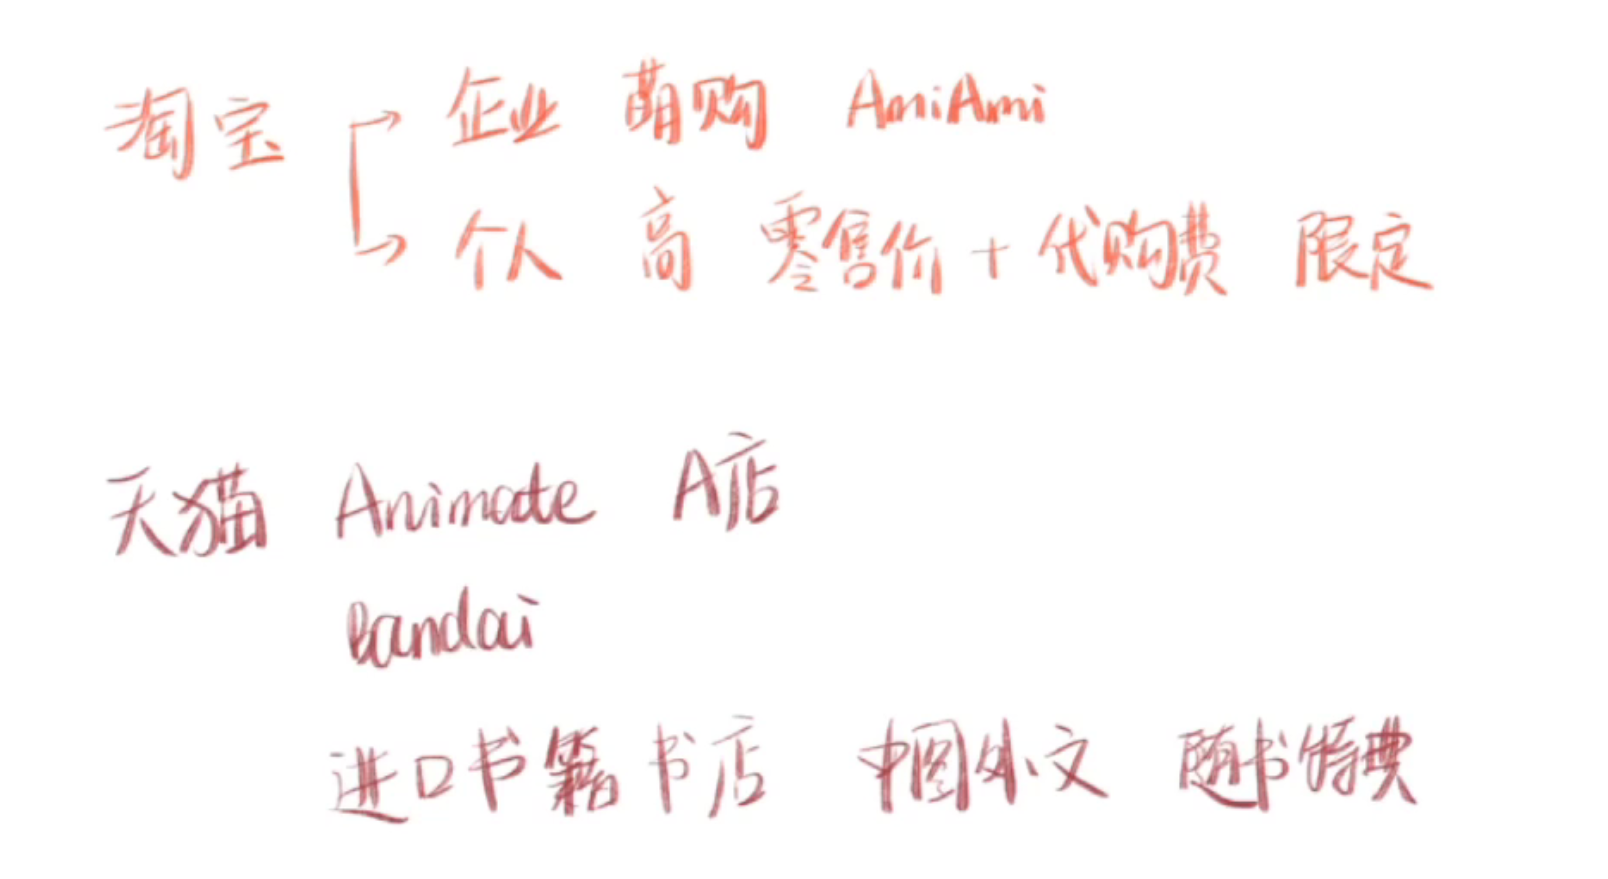 淘宝 → 企业 萌购 AmiAmi
→ 个人 高 零售价+代购费 限定
天猫 Animate A店
Bandai
进口书籍书店 中图外文 随书特典